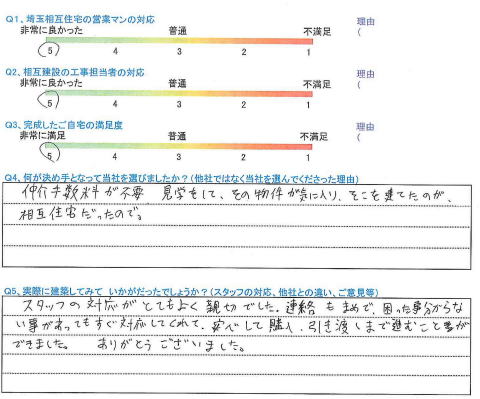 Q1、埼玉相互住宅の営業マンの対応
非常に良かった 普通 不満足 理由
5 4 3 2 1 (
Q2、相互建設の工事担当者の対応
非常に良かった 普通 不満足 理由
5 4 3 2 1 (
Q3、完成したご自宅の満足度
非常に満足 普通 不満足 理由
5 4 3 2 1 (
Q4、何が決め手となって当社を選びましたか?(他社ではなく当社を選んでくださった理由)
仲介手数料が不要 見学をして、その物件が気に入り、そこを建てたのが、
相互住宅だったので。
Q5、実際に建築してみて いかがだったでしょうか?(スタッフの対応、他社との違い、ご意見等)
スタッフの対応がとてもよく親切でした。連絡もまめで、困った事分からな
い事があってもすぐ対応してくれて、安心して購入、引き渡しまで進むこと が
できました。 ありがとうございました。